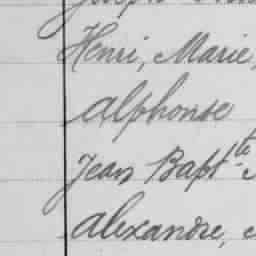 Henri, Marie,
Alphonse
Jean Bapt^te
Alexandre,